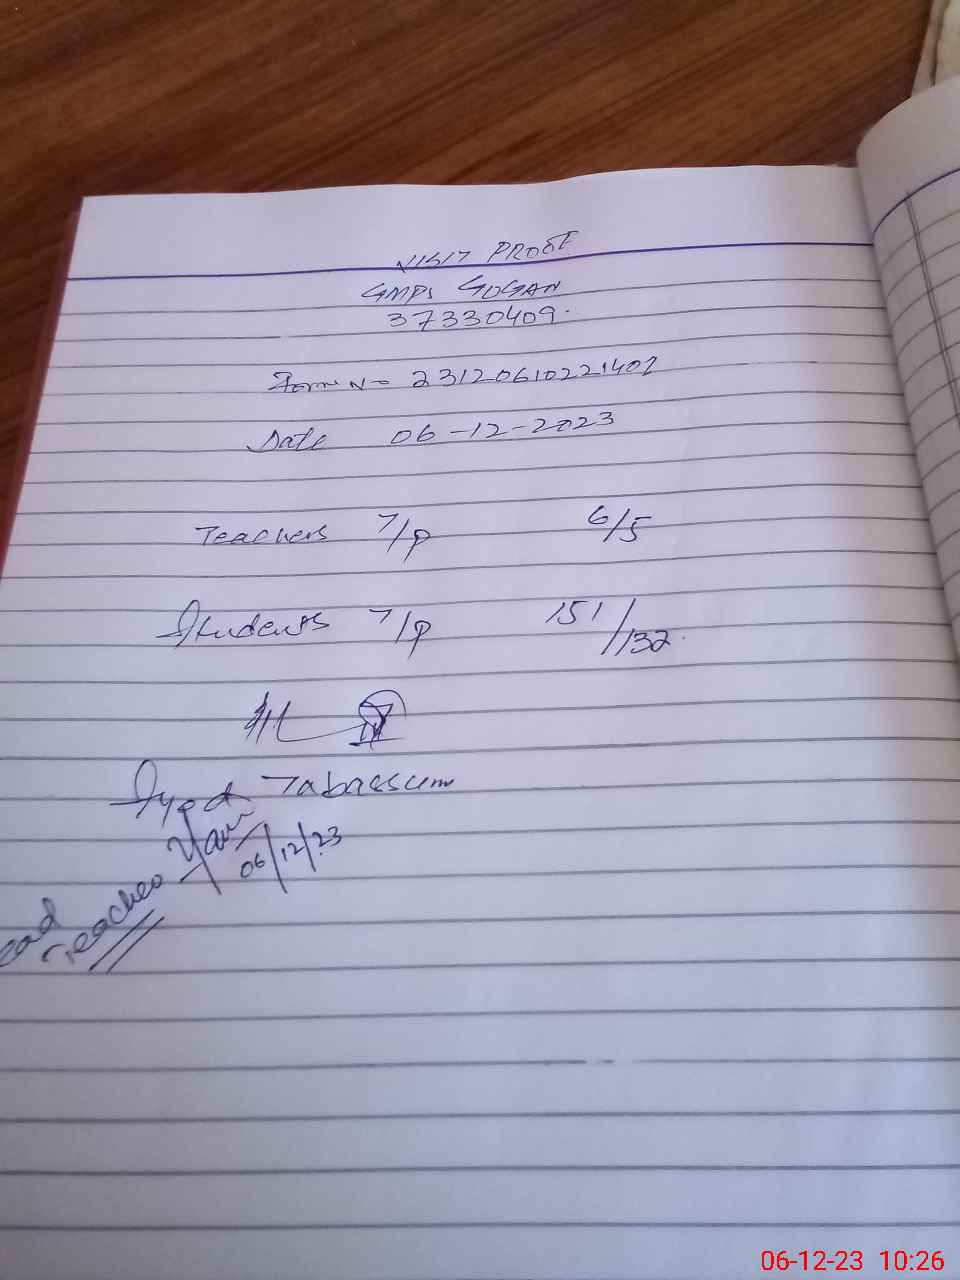 VISIT PROOF
GMPS GOGAN
37330409.
Form No 23120610221401
Date 06-12-2023
Teachers T/P 6/5
Students T/P 151/132.
Syed Tabassum
06/12/23
Teacher
06-12-23 10:26